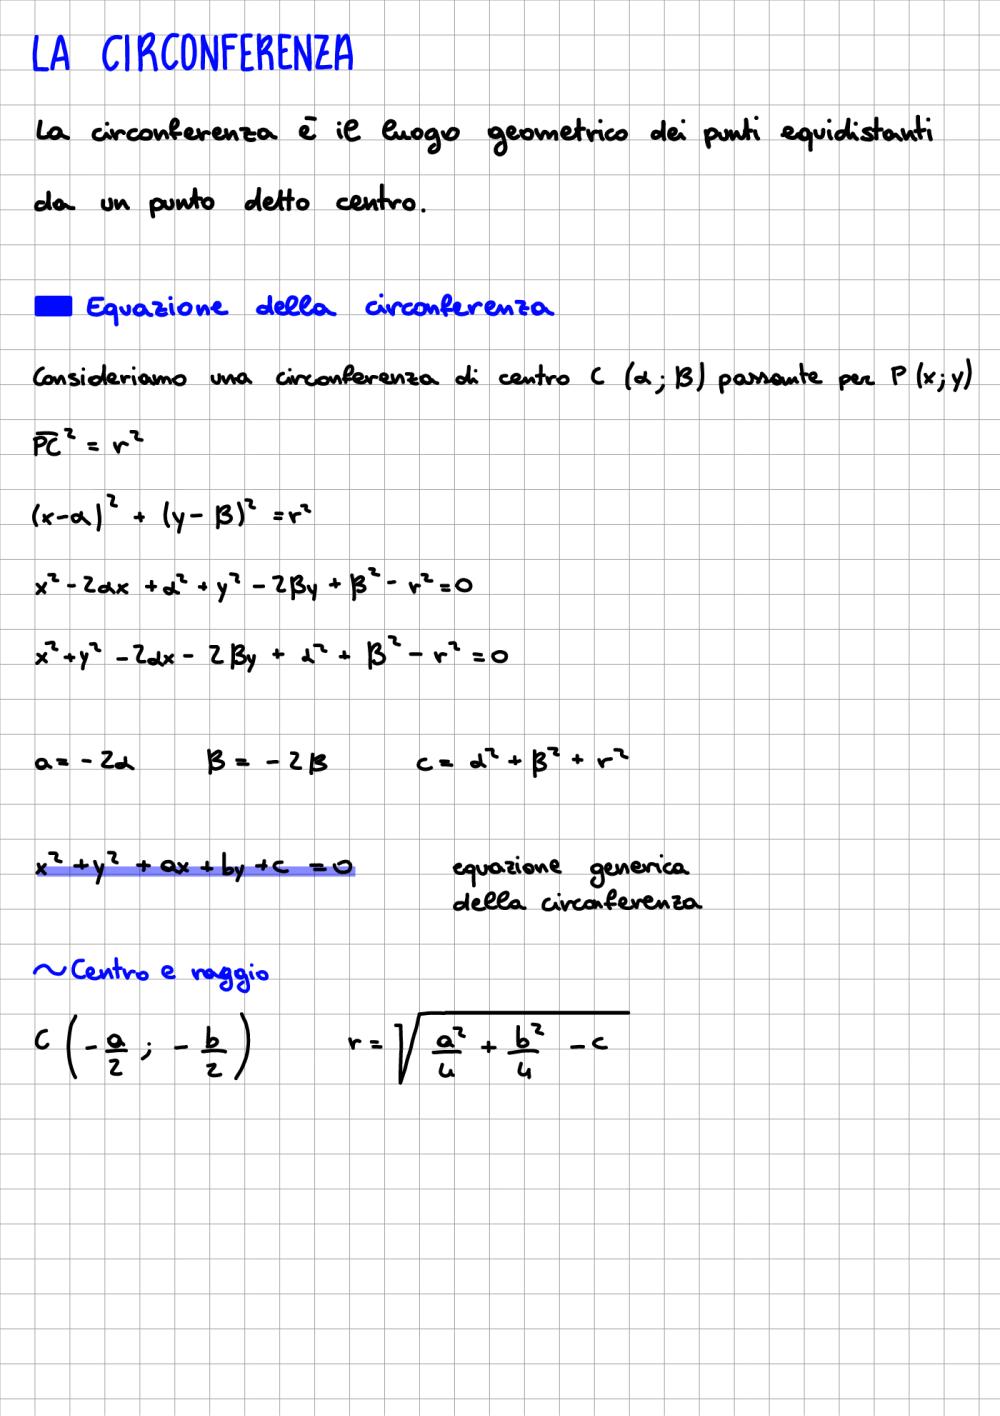 LA CIRCONFERENZA
La circonferenza è il luogo geometrico dei punti equidistanti
da un punto detto centro.
Equazione della circonferenza
Consideriamo una circonferenza di centro C (α; β) passante per P (x; y)
P̅C̅² = r²
(x-α)² + (y-β)² = r²
x² - 2αx + α² + y² - 2βy + β² - r² = 0
x² + y² - 2αx - 2βy + α² + β² - r² = 0
a = -2α β = -2β c = α² + β² + r²
x² + y² + ax + by + c = 0 equazione generica
della circonferenza
~Centro e raggio
C (-a/2 ; -b/2) r = √(a²/4 + b²/4 - c)